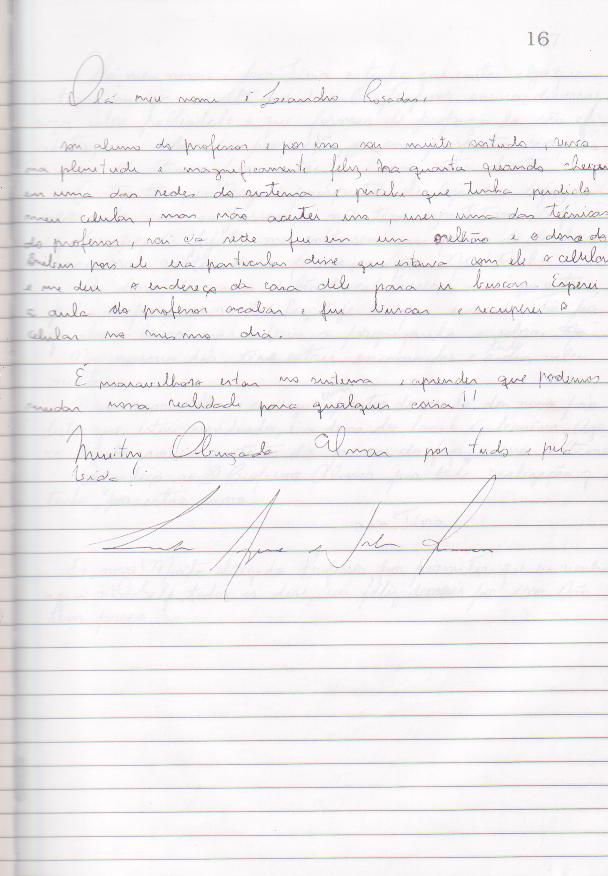 16
Olá meu nome é Leandro Rosadas,
sou aluno do professor e por isso sou muito sortudo, vivo
na plenitude e magnificamente feliz. Na quarta quando cheguei
em uma das redes do sistema e percebi que tinha perdido
meu celular, mas não aceitei isso, usei uma das técnicas
do professor, sai da rede fui em um orelhão e o dono do
pois ele era particular disse que estava com ele o celular
e me deu o endereço da casa dele para ir buscar. Esperei
a aula do professor acabar e fui buscar e recuperei o
celular no mesmo dia.
É maravilhoso estar no sistema e aprender que podemos
mudar nossa realidade para qualquer coisa!!
Muito Obrigado por tudo e pela
Vida!